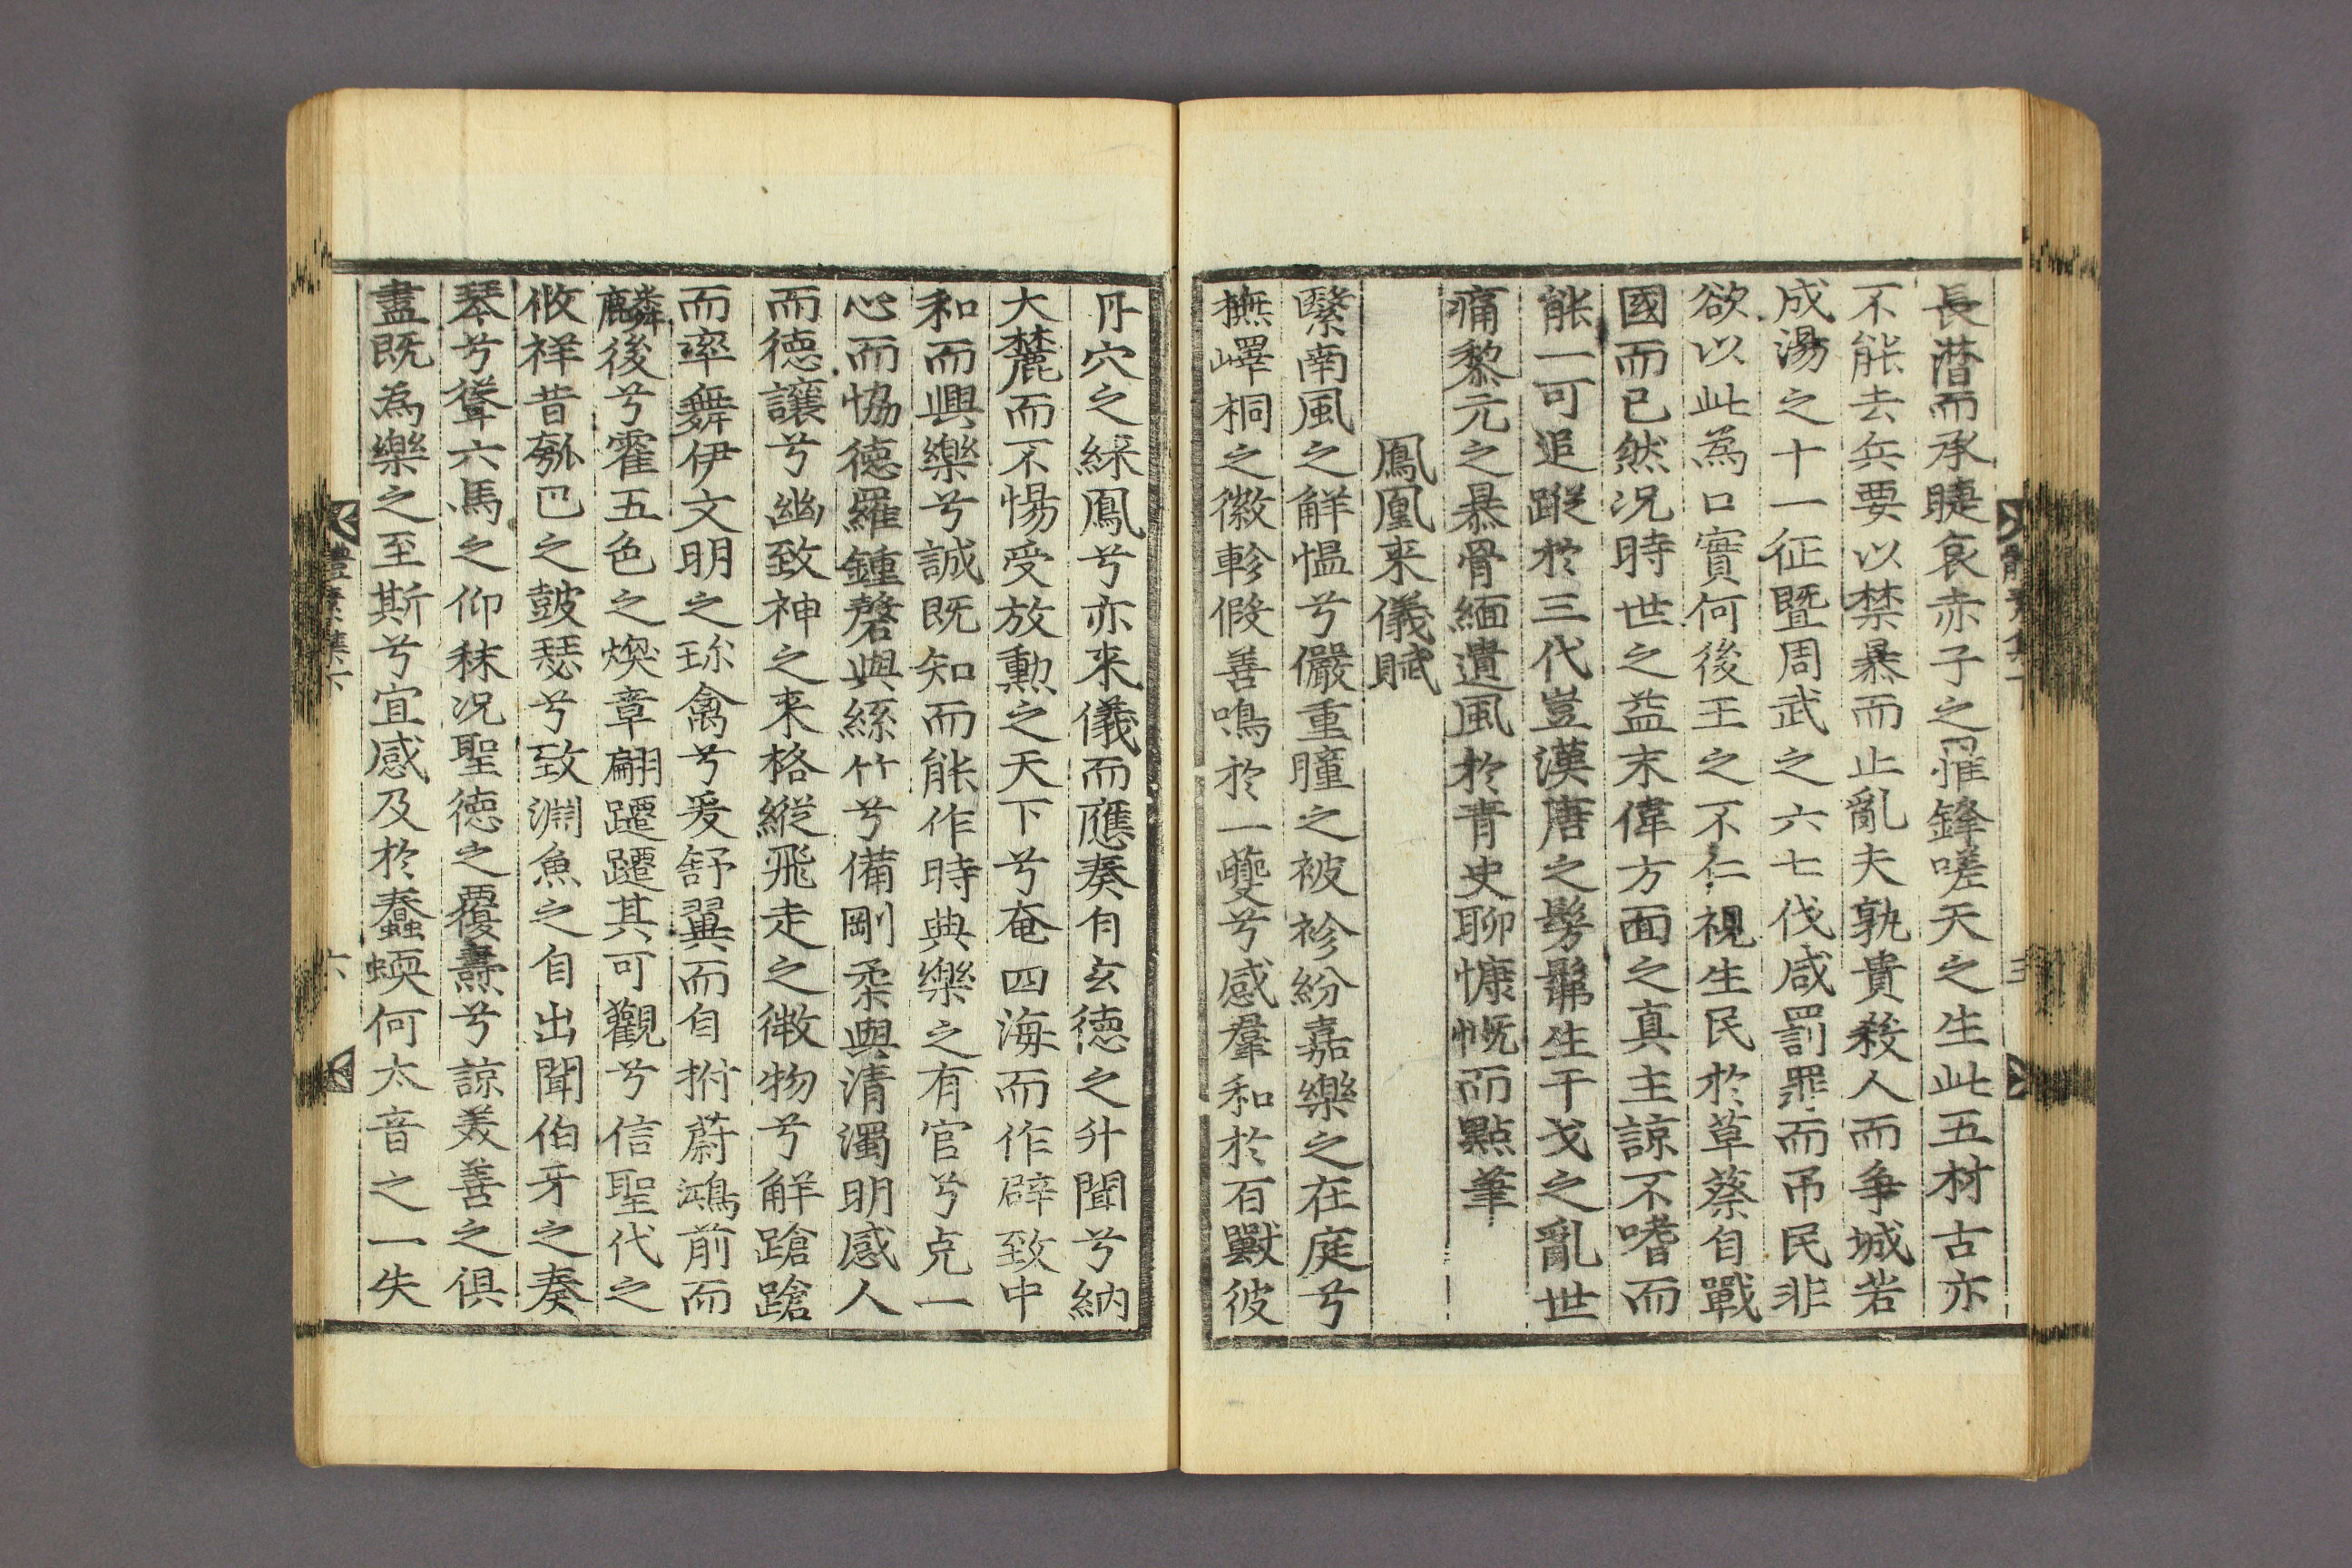 長潛而承睫哀赤子之罹鋒嗟天之生此五材古亦
不能去兵要以禁暴而止亂夫孰貴殺人而爭城若
成湯之十一征曁周武之六七伐咸罰罪而吊民非
欲以此為口實何後王之不仁視生民於草蔡自戰
國而已然况時世之益末偉方面之真主諒不嗜而
能一可追蹤於三代豈漢唐之髣髴生干戈之亂世
痛黎元之暴骨緬遺風於青史聊慷慨而點筆
鳳凰来儀賦
繄南風之觧愠兮儼重瞳之被袗紛嘉樂之在庭兮
撫嶧桐之徽軫假善鳴於一夔兮感羣和於百獸彼
丹穴之綵鳳兮亦来儀而應奏自玄徳之升聞兮納
大麓而不惕受放勳之天下兮奄四海而作辟致中
和而興樂兮誠既知而能作時典樂之有官兮克一
心而恊德羅鍾磬與絲竹兮備剛柔與清濁明感人
而德讓兮幽致神之来格縱飛走之微物兮觧蹌蹌
而率舞伊文明之珎禽兮爰舒翼而自拊蔚鴻前而
麟後兮霍五色之煥章翩躚躚其可觀兮信聖代之
攸祥昔瓠巴之鼓瑟兮致淵魚之自出聞伯牙之奏
琴兮聳六馬之仰秣况聖德之覆燾兮諒美善之俱
盡既為樂之至斯兮宜感及於蠢蝡何太音之一失
六